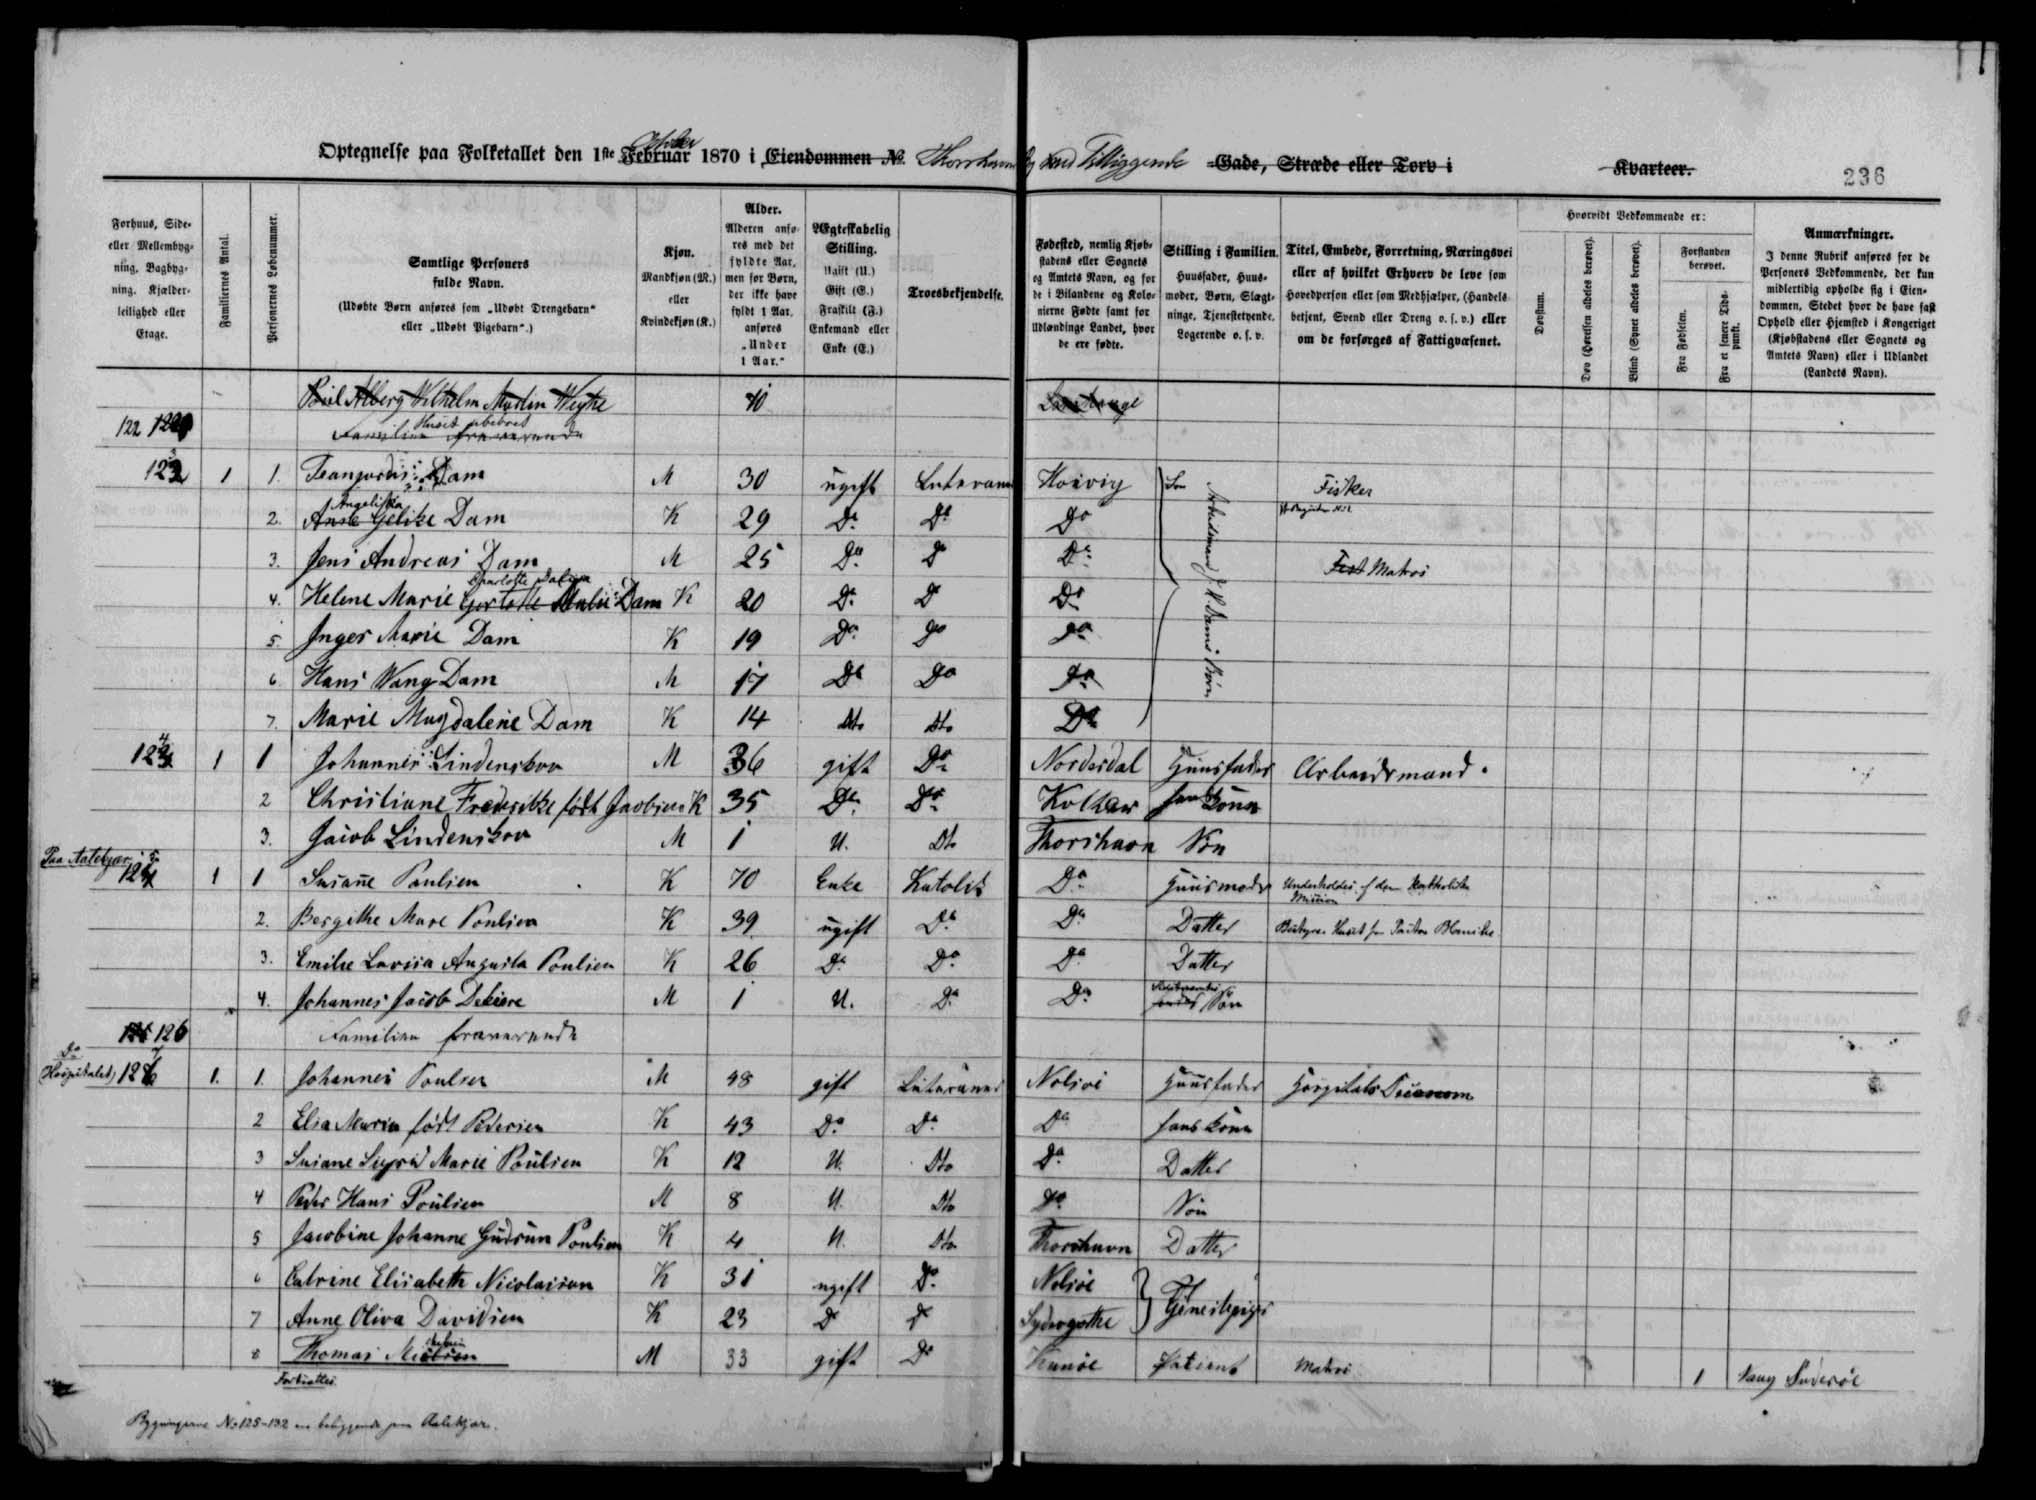 Optegnelse paa Folketallet den 1ste Februar 1870 i Eiendommen No. Thorshavn og Tilliggende Gade, Stræde eller Torv i Kvarteer.
236
Forhuus, Side- eller Mellembyg- ning, Bagbyg- ning. Kjælder- leilighed eller Etage.
Familiernes Antal.
Personernes Løbenummer.
Samtlige Personers fulde Navn.
(Udøbte Børn anføres som „Udøbt Drengebarn“ eller „Udøbt Pigebarn“.)
Kjøn.
Mandkjøn (M.) eller Kvindekjøn (K.)
Alder.
Alderen anfø- res med det fyldte Aar, men for Børn, der ikke have fyldt 1 Aar, anføres „Under 1 Aar.“
Ægteskabelig Stilling.
Ugift (U.) Gift (G.) Fraskilt (F.) Enkemand eller Enke (E.)
Troesbekjendelse.
Fødested, nemlig Kjøb- stadens eller Sognets og Amtets Navn, og for de i Bilandene og Kolo- nierne Fødte samt for Udlændinge Landet, hvor de ere fødte.
Stilling i Familien.
Huusfader, Huus- moder, Børn, Slægt- ninge, Tjenestetyende, Logerende o. s. v.
Titel, Embede, Forretning, Næringsvei eller af hvilket Erhverv de leve som Hovedperson eller som Medhjælper, (Handels- betjent, Svend eller Dreng o. s. v.) eller om de forsørges af Fattigvæsenet.
Hvorvidt Vedkommende er:
Døvstum.
Døv (Hørelsen aldeles berøvet).
Blind (Synet aldeles berøvet).
Forstanden berøvet.
Fra Fødselen.
Fra et senere Tids- punkt.
Anmærkninger.
I denne Rubrik anføres for de Personers Vedkommende, der kun midlertidig opholde sig i Eien- dommen, Stedet hvor de have fast Ophold eller Hjemsted i Kongeriget (Kjøbstadens eller Sognets og Amtets Navn) eller i Udlandet (Landets Navn).
Alberg Wilhelm Martin 40
122 Huset ubeboet
Familien fraværende
123 1 1. Dam M 30 ugift Luteraner Hoivig Søn Fisker
Angelika
2. Anne Gelike Dam K 29 Do Do Do
3. Jens Andreas Dam M 25 Do Do Do Matros
Charlotte
4. Helene Marie Dam K 20 Do Do Do
5. Inger Marie Dam K 19 Do Do Do
6 Hans Wang Dam M 17 Do Do Do
7. Marie Magdalene Dam K 14 Dto Dto Do
Arbeidsmand J. H. Dams Børn
124 1 1 Johannes Lindenskov M 36 gift Do Nordredal Huusfader Arbeidsmand.
2 Christiane Frederikke født Jacobsen K 35 Do Do Kolter hans Kone
3. Jacob Lindenskov M 1 U. Dto Thorshavn Søn
Paa Aalekjær
125 1 1 Susanne Poulsen K 70 Enke Katolik Do Huusmoder Underholdes af den Katholske Mission
2. Bergithe Mare Poulsen K 39 ugift Do Do Datter Bestyrer Huset for Pastor
3. Emilie Lovisa Augusta Poulsen K 26 Do Do Do Datter
4. Johannes Jacob Debiere M 1 U. Do Do Søn
126 Familien fraværende
Do Hospitalet) 127 1. 1. Johannes Poulsen M 48 gift Luteraner Nolsøe Huusfader Hospitals Oeconom
2 Elsa Maria født Pedersen K 43 Do Do Do hans Kone
3 Susane Sigrid Marie Poulsen K 12 U. Dto Do Datter
4 Peder Hans Poulsen M 8 U. Dto Do Søn
5 Jacobine Johanne Gudrun Poulsen K 4 U. Dto Thorshavn Datter
6 Catrine Elisabeth Nicolaisen K 31 ugift Do Nolsøe
7 Anne Oliva Davidsen K 23 Do Do Sydregøthe Tjenestepiger
8 Thomas M 33 gift Do Kunøe Patient Matros 1 Vaag Suderøe
Fortsættes
Bygningerne No 125-132 ere beliggende paa Aalekjær.